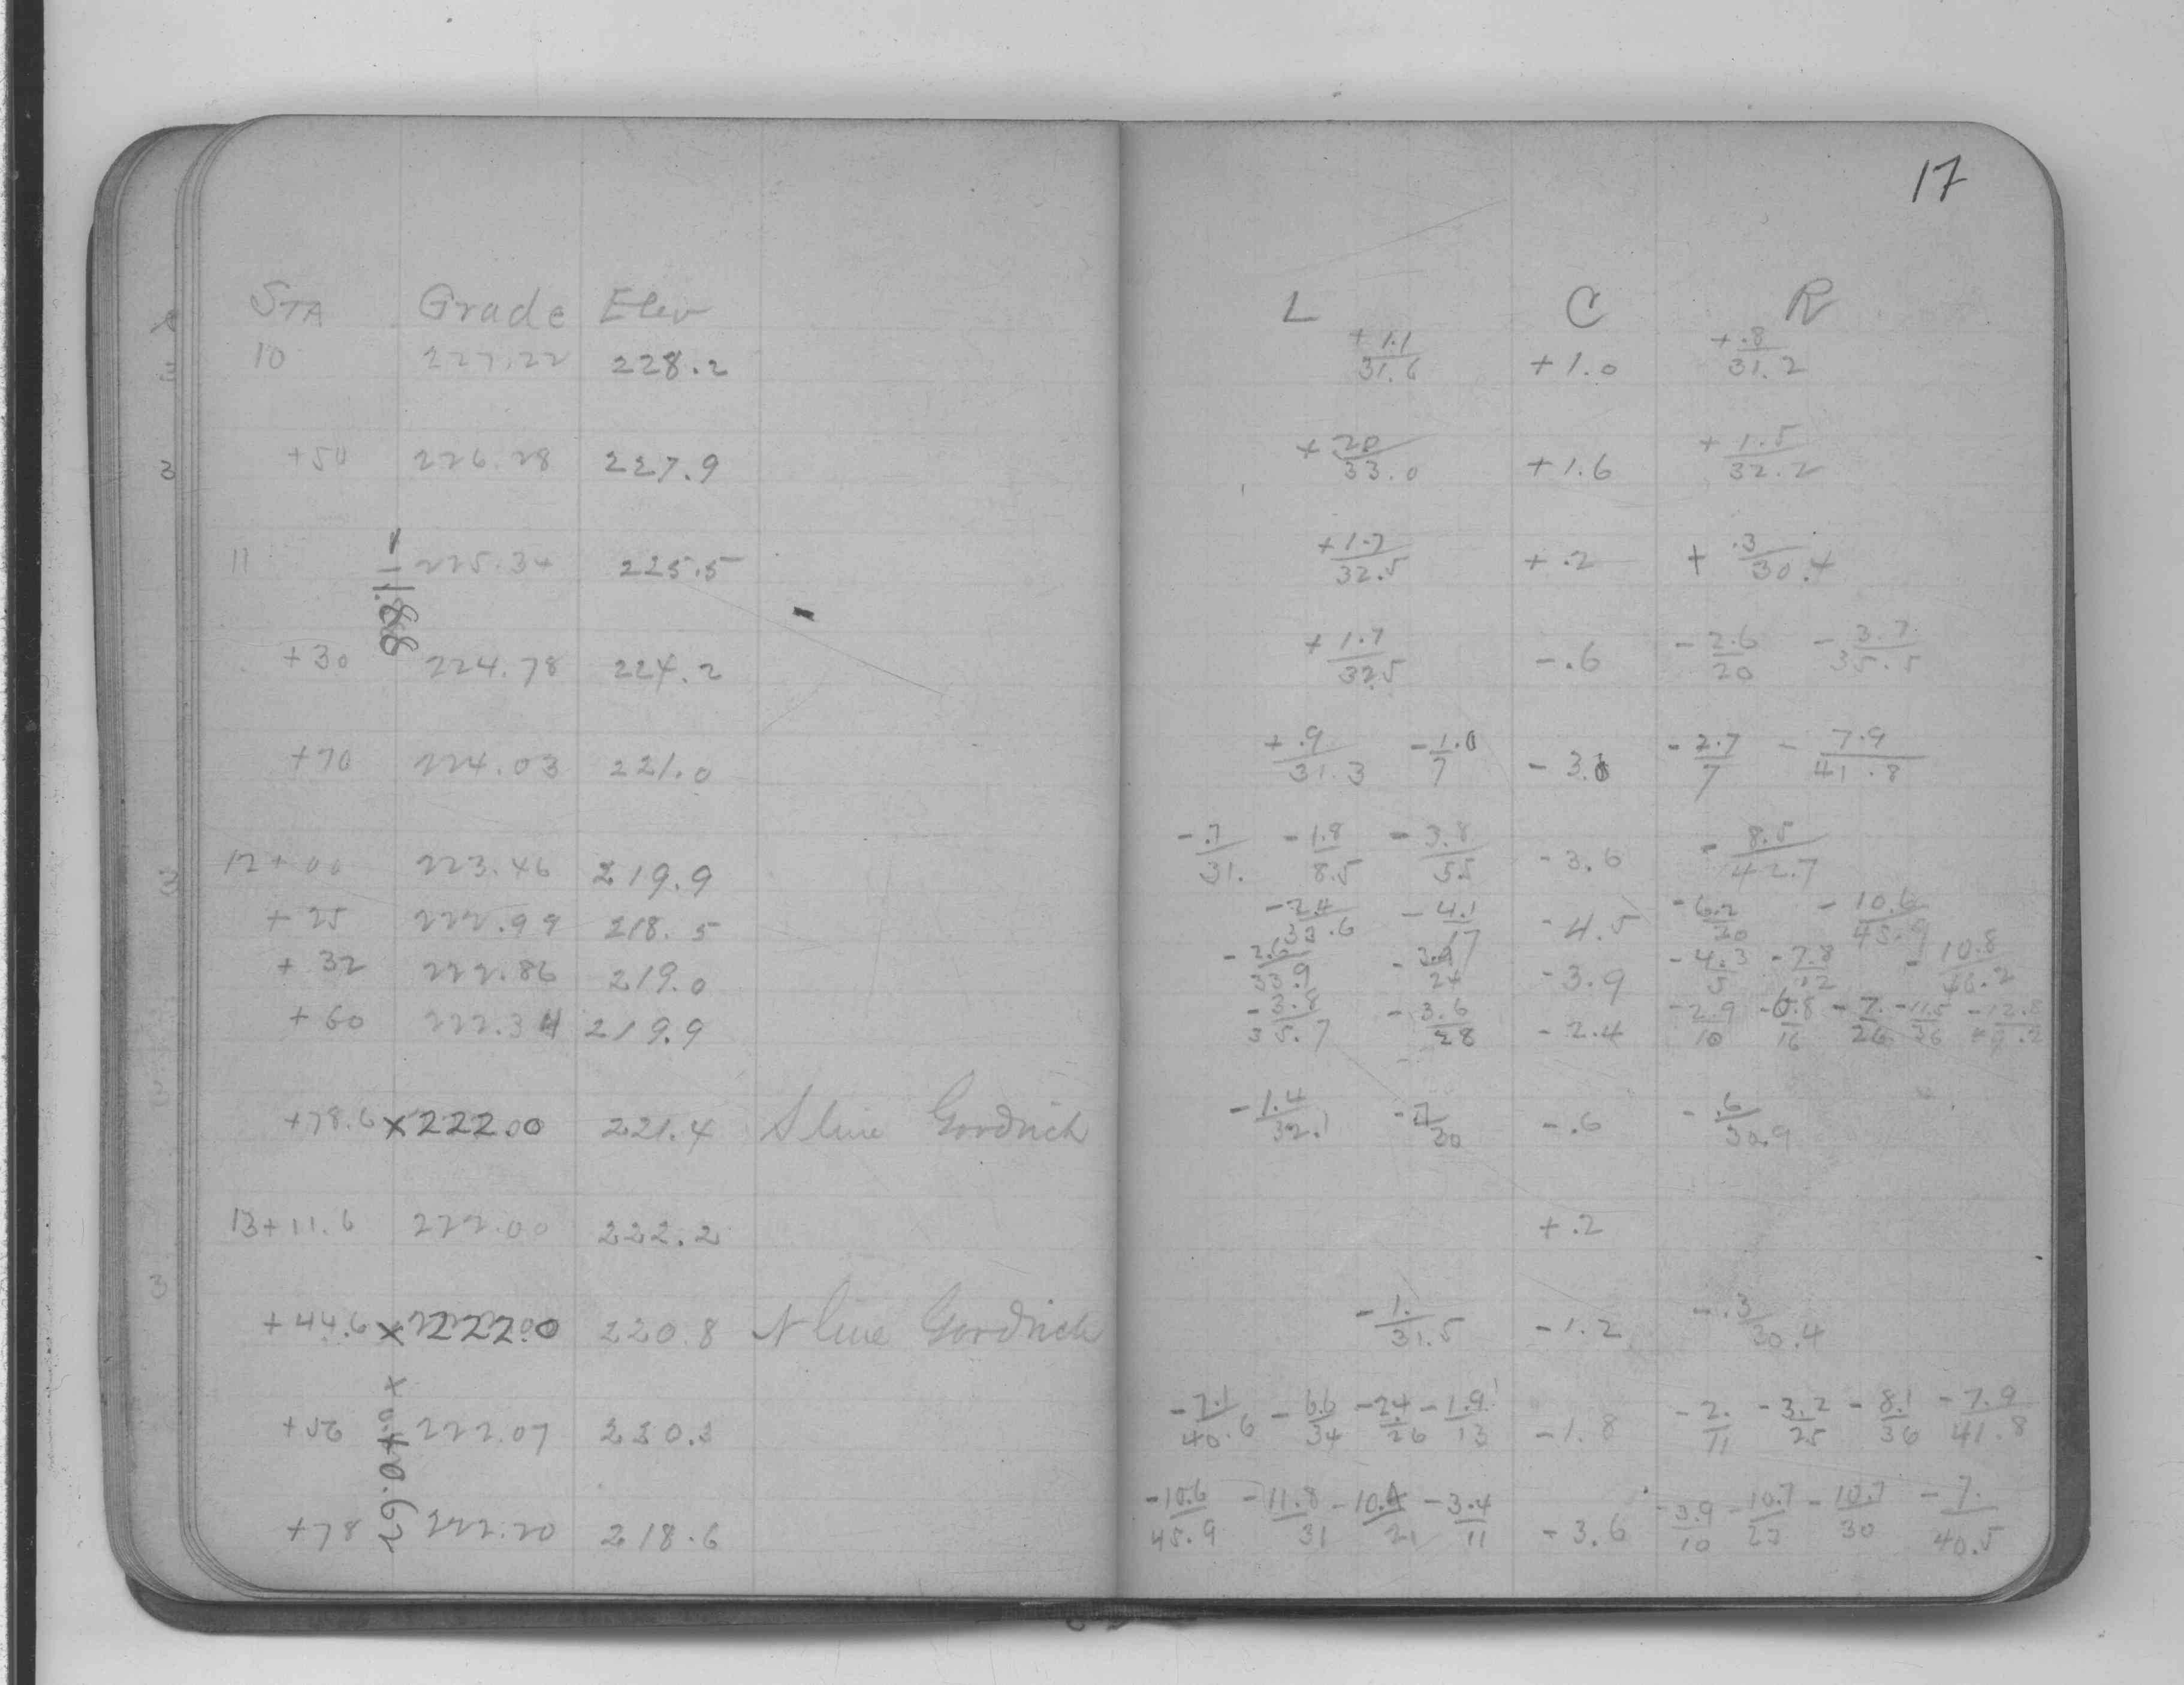 17
STA Grade Elev L C R
10 227.22 228.2 +1.1/31.6 +1.0 +.8/31.2
+50 226.28 227.9 +2.0/33.0 +1.6 +1.5/32.2
11 225.34 225.5 +1.7/32.5 +.2 +.3/30.4
-1.88
+30 224.78 224.2 +1.7/32.5 -.6 -2.6/20 -3.7/35.5
+70 224.03 221.0 +.9/31.3 -1.0/7 -3.0 -2.7/7 -7.9/41.8
12+00 223.46 219.9 -.7/31. -1.8/8.5 -3.8/55 -3.6 -8.5/42.7
+25 222.99 218.5 -2.4/33.6 -4.1/17 -4.5 -6.2/20 -10.6/45.9
+32 222.86 219.0 -2.6/33.9 -3.9/24 -3.9 -4.3/5 -7.8/22 -10.8/46.2
+60 222.34 219.9 -3.8/35.7 -3.6/28 -2.4 -2.9/10 -6.8/16 -7./26 -11.5/36
+78.6 x222.00 221.4 S line Goodrich -1.4/32.1 -.7/30 -.6 -.6/30.9
13+11.6 222.00 222.2 +.2
+44.6 x222.00 220.8 N line Goodrich -1./31.5 -1.2 -.3/30.4
+56 222.07 220.3 -7.1/40.6 -6.6/34 -2.4/26 -1.9/13 -1.8 -2./11 -3.2/25 -8.1/36 -7.9/41.8
+0.62
+78 222.20 218.6 -10.6/45.9 -11.8/31 -10.4/21 -3.4/11 -3.6 -3.9/10 -10.7/23 -10.7/30 -7./40.5